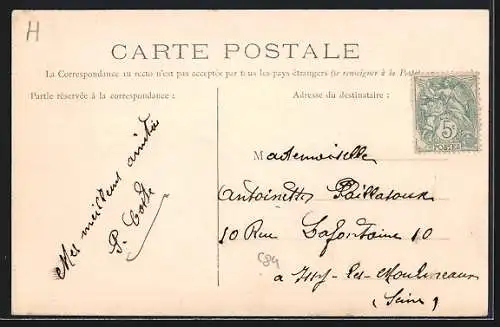 H
CARTE POSTALE
La Correspondance au recto n'est pas acceptée par tous les pays étrangers (se renseigner à la Poste)
Partie réservée à la correspondance :
Adresse du destinataire :
5c
POSTES
Mes meilleures amitiés
P. Coste
Mademoiselle
Antoinette
10 Rue Lafontaine 10
à Issy-les-Moulineaux
(Seine)